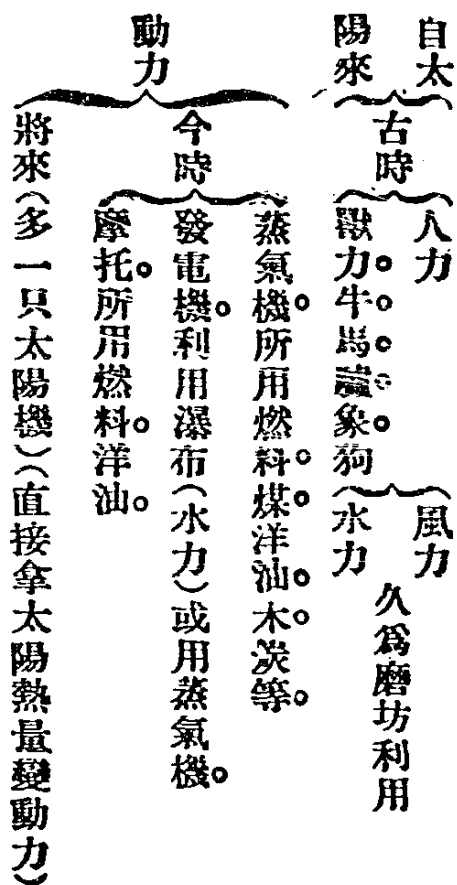 自太
陽來
動力
古時
人力
獸力。牛。馬。驢。象。狗
風力
水力
久爲磨坊利用
今時
蒸氣機。所用燃料。煤。洋油。木炭等。
發電機。利用瀑布(水力)或用蒸氣機。
摩托。所用燃料。洋油。
將來(多一只太陽機)(直接拿太陽熱量變動力)